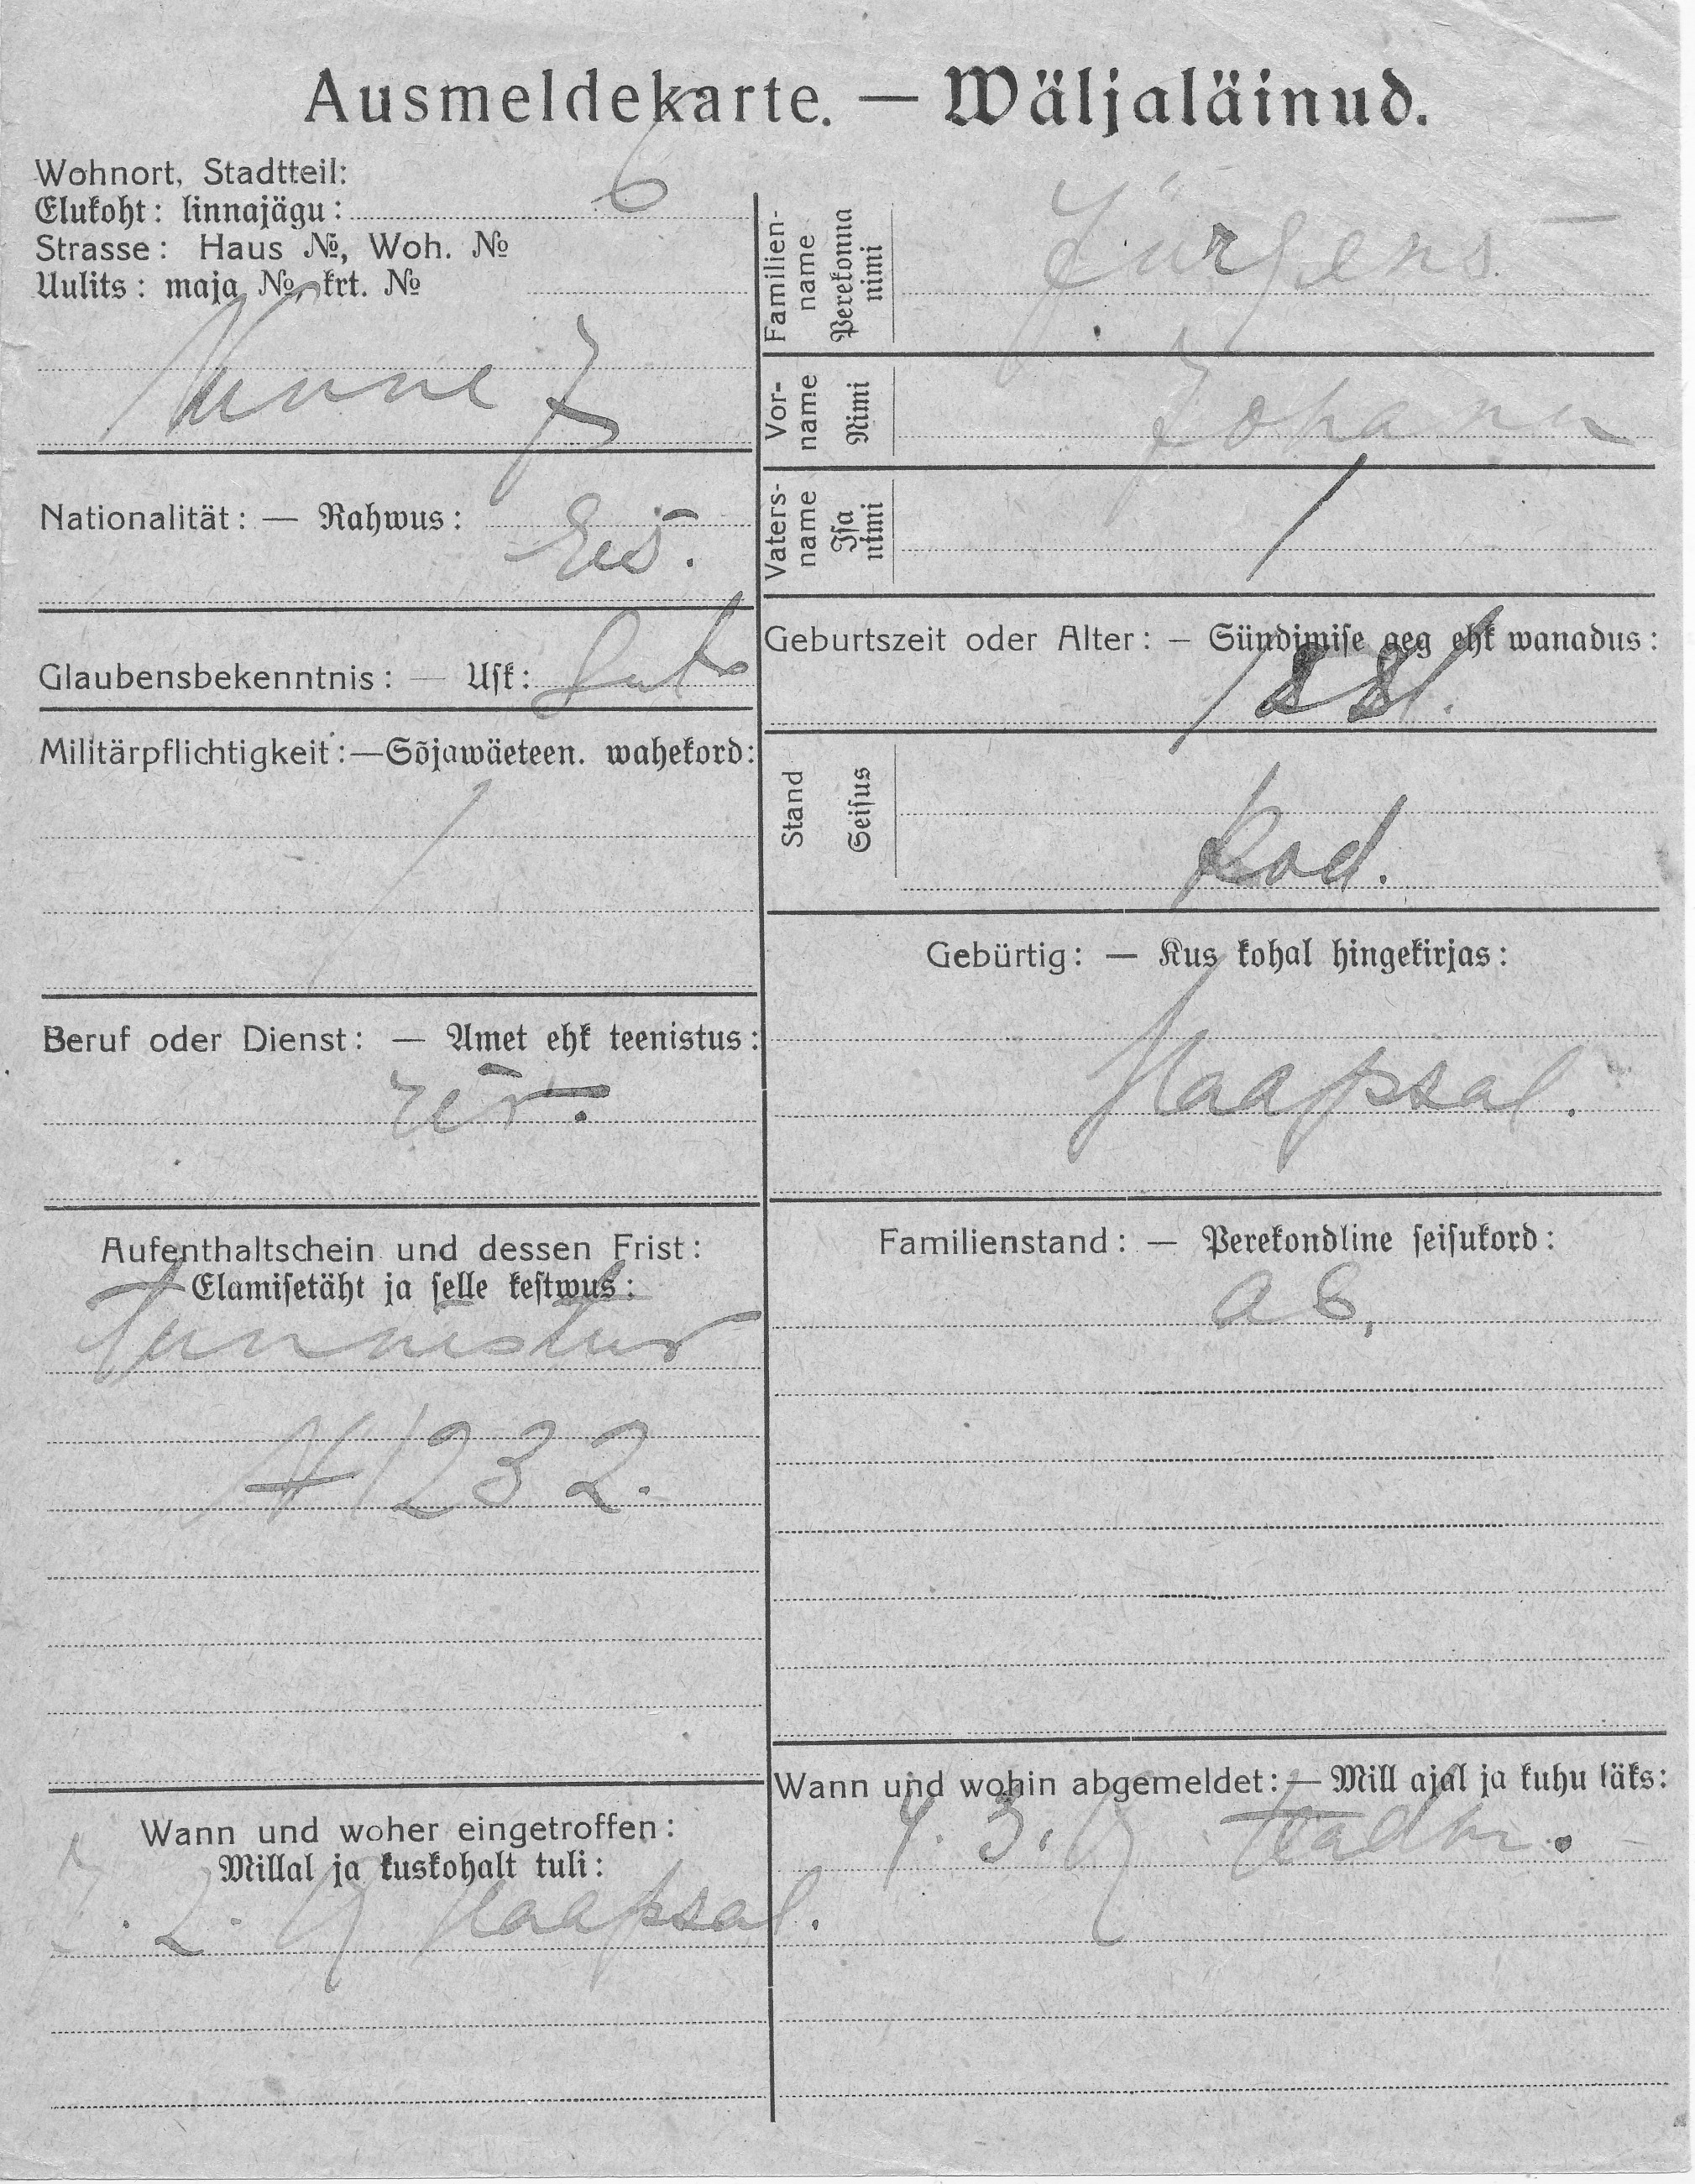 Ausmeldekarte. — Wäljaläinud.
Wohnort, Stadtteil:
Elukoht: linnajägu: 6
Strasse: Haus №, Woh. №
Uulits: maja №, krt. №
Nunne 7
Nationalität: — Rahwus: Ees.
Glaubensbekenntnis: — Usk: Lut
Militärpflichtigkeit: — Sõjawäeteen. wahekord:
/
Beruf oder Dienst: — Amet ehk teenistus:
Aufenthaltschein und dessen Frist:
Elamisetäht ja selle kestwus:
Tunnistus
№ 1232.
Wann und woher eingetroffen:
Millal ja kuskohalt tuli:
2. Haapsal.
Familien-
name
Perekonna
nimi
Jürgens
Vor-
name
Nimi
Johann
Vaters-
name
Isa
nimi
/
Geburtszeit oder Alter: — Sündimise aeg ehk wanadus:
1881.
Stand
Seisus
Kod.
Gebürtig: — Kus kohal hingekirjas:
Haapsal.
Familienstand: — Perekondline seisukord:
ab,
Wann und wohin abgemeldet: — Mill ajal ja kuhu läks:
4. 3. 19